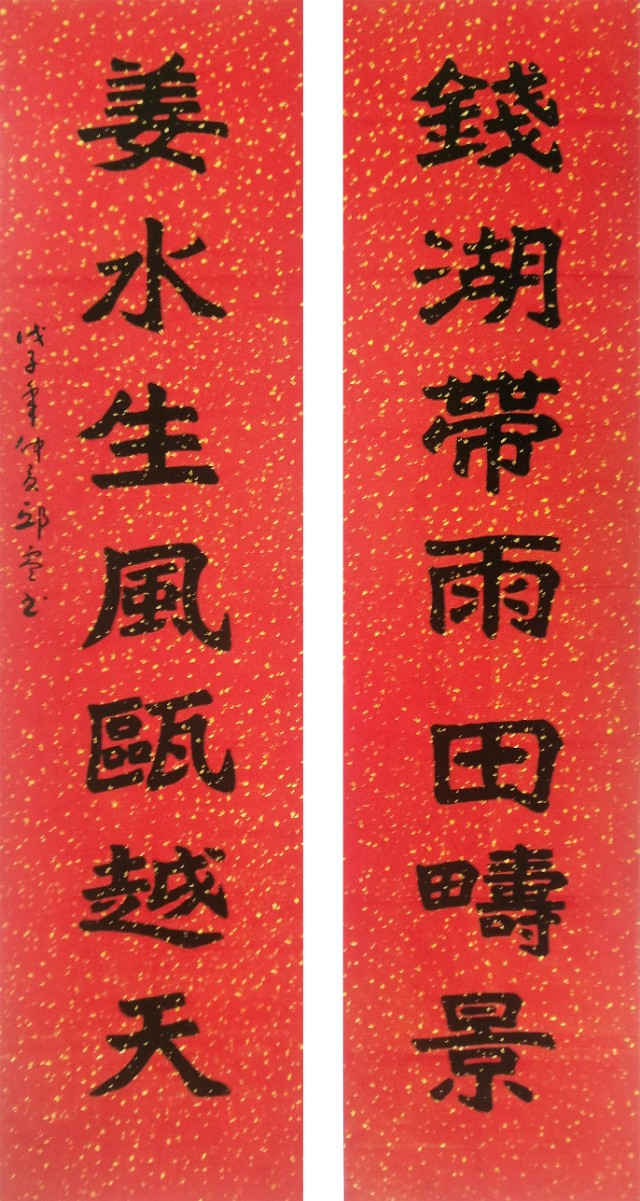 錢湖帶雨田疇景
姜水生風甌越天
戊子年仲夏邱雲书